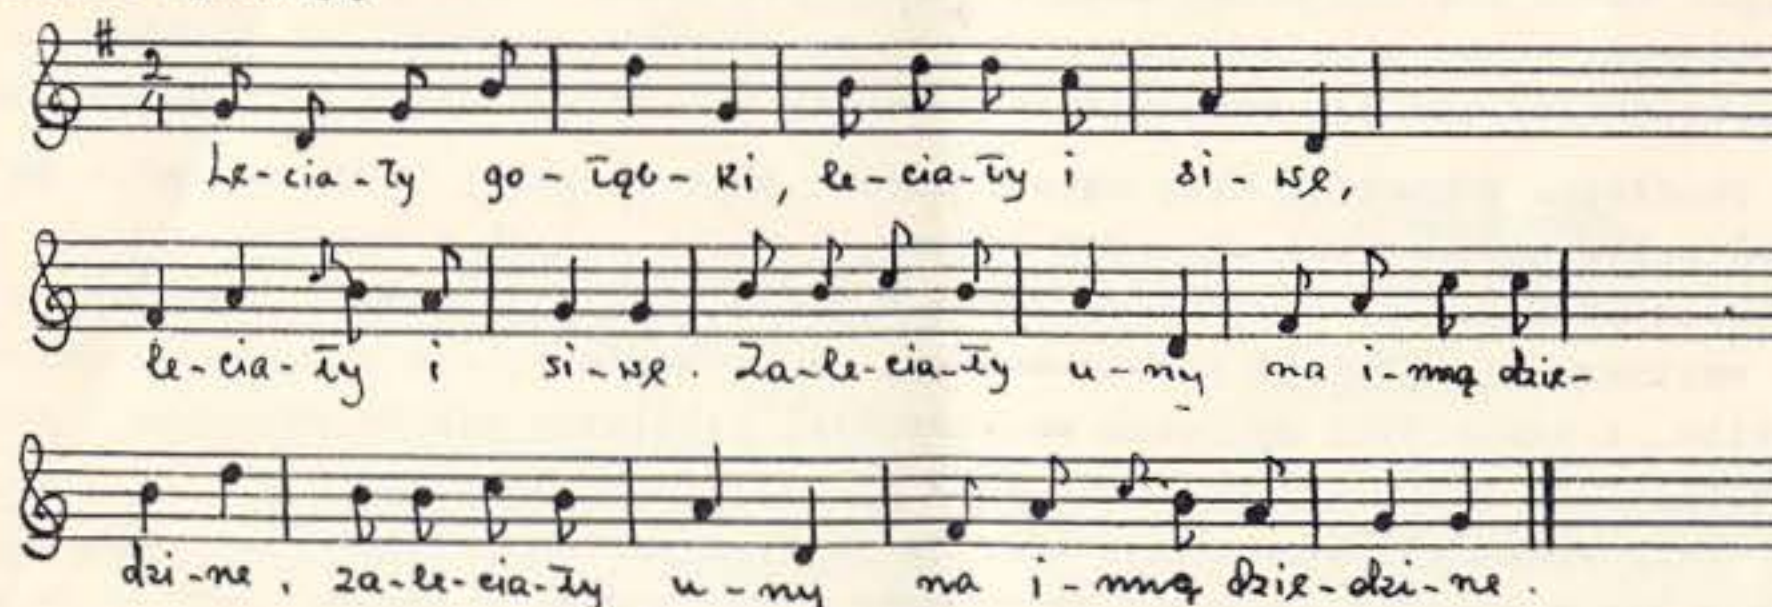 2
4
Le-cia-ły go-łąb-ki, le-cia-ły i si-we,
le-cia-ły i si-we. Za-le-cia-ły u-ny na i-nną dzie-
dzi-ne, za-le-cia-ły u-ny na i-nną dzie-dzi-ne.